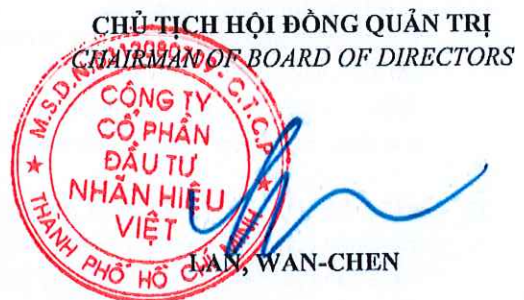 CHỦ TỊCH HỘI ĐỒNG QUẢN TRỊ
CHAIRMAN OF BOARD OF DIRECTORS
CÔNG TY
CỔ PHẦN
ĐẦU TƯ
NHÃN HIỆU
VIỆT
THÀNH PHỐ HỒ CHÍ MINH
LAN, WAN-CHEN